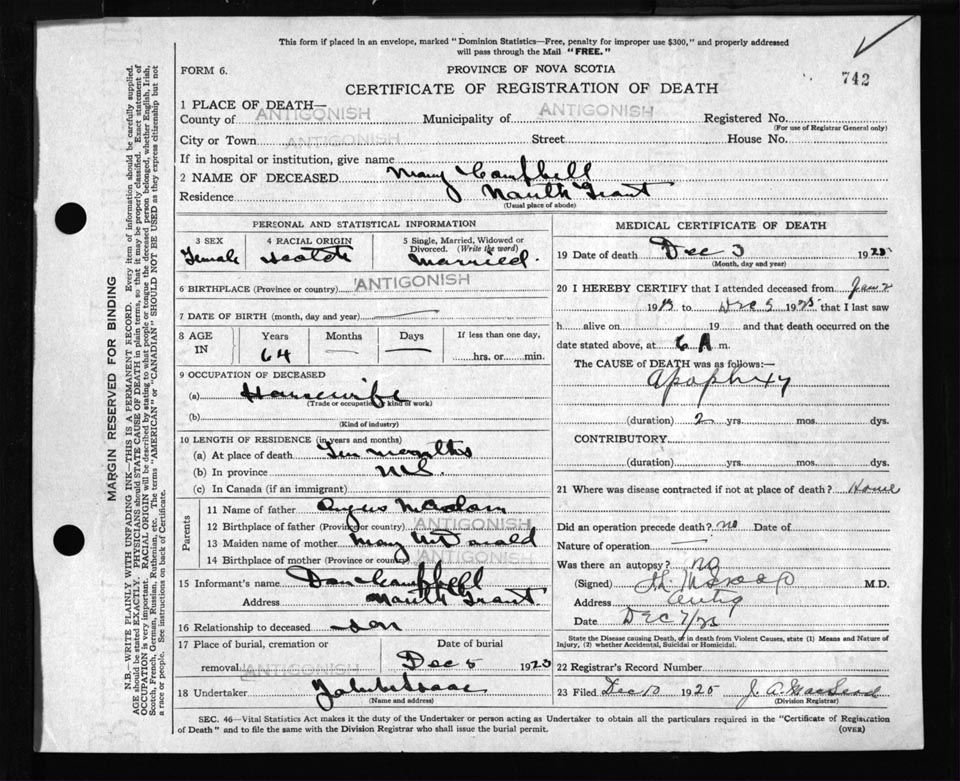 This form if placed in an envelope, marked "Dominion Statistics—Free, penalty for improper use $300," and properly addressed
will pass through the Mail "FREE."
742
FORM 6.
PROVINCE OF NOVA SCOTIA
CERTIFICATE OF REGISTRATION OF DEATH
1 PLACE OF DEATH—
County of ANTIGONISH Municipality of ANTIGONISH Registered No.
(For use of Registrar General only)
City or Town ANTIGONISH Street House No.
If in hospital or institution, give name
2 NAME OF DECEASED Mary Campbell
Residence North Grant
(Usual place of abode)
PERSONAL AND STATISTICAL INFORMATION
3 SEX 4 RACIAL ORIGIN 5 Single, Married, Widowed or Divorced. (Write the word)
Female Scotch Married.
6 BIRTHPLACE (Province or country) ANTIGONISH
7 DATE OF BIRTH (month, day and year)
8 AGE IN Years Months Days If less than one day,
64 — — hrs. or min.
9 OCCUPATION OF DECEASED
(a) Housewife
(Trade or occupation or kind of work)
(b)
(Kind of industry)
10 LENGTH OF RESIDENCE (in years and months)
(a) At place of death Ten months
(b) In province
(c) In Canada (if an immigrant)
Parents
11 Name of father Angus McAdam
12 Birthplace of father (Province or country) ANTIGONISH
13 Maiden name of mother Mary McDonald
14 Birthplace of mother (Province or country) ANTIGONISH
15 Informant's name Dan Campbell
Address North Grant
16 Relationship to deceased son
17 Place of burial, cremation or Date of burial
removal ANTIGONISH Dec 5 1925
18 Undertaker
(Name and address)
MEDICAL CERTIFICATE OF DEATH
19 Date of death Dec 3 1925
(Month, day and year)
20 I HEREBY CERTIFY that I attended deceased from Jan 2
19 to Dec 1925 that I last saw
h alive on 19 and that death occurred on the
date stated above, at 6 A m.
The CAUSE OF DEATH was as follows:—
Apoplexy
(duration) 2 yrs. mos. dys.
CONTRIBUTORY
(duration) yrs. mos. dys.
21 Where was disease contracted if not at place of death? Home
Did an operation precede death? no Date of
Nature of operation —
Was there an autopsy? no
(Signed) M.D.
Address Antig
Date Dec 7/25
State the Disease causing Death, or in death from Violent Causes, state (1) Means and Nature of
Injury, (2) whether Accidental, Suicidal or Homicidal.
22 Registrar's Record Number
23 Filed Dec 10 1925 J. A. MacLeod
(Division Registrar)
SEC. 46—Vital Statistics Act makes it the duty of the Undertaker or person acting as Undertaker to obtain all the particulars required in the "Certificate of Registration
of Death" and to file the same with the Division Registrar who shall issue the burial permit.
(OVER)
MARGIN RESERVED FOR BINDING
N.B.—WRITE PLAINLY WITH UNFADING INK—THIS IS A PERMANENT RECORD. Every item of information should be carefully supplied.
AGE should be stated EXACTLY. PHYSICIANS should STATE CAUSE OF DEATH in plain terms, so that it may be properly classified. Exact statement of
OCCUPATION is very important. RACIAL ORIGIN will be described by stating to what people or tongue the deceased person belonged, whether English, Irish,
Scotch, French, German, Russian, Ruthenian, etc. The terms "AMERICAN" or "CANADIAN" SHOULD NOT BE USED as they express citizenship but not
a race or people. See instructions on back of Certificate.